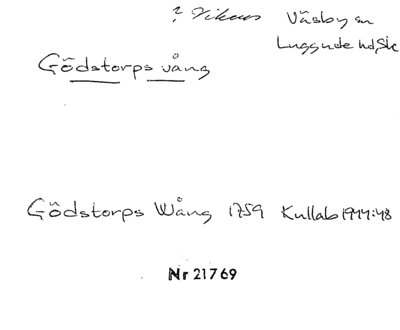 ? Vikens Väsby sn
Luggude hd, Sk
Gödstorps vång
Gödstorps Wång 1759 Kullab 1977:48
Nr 21769